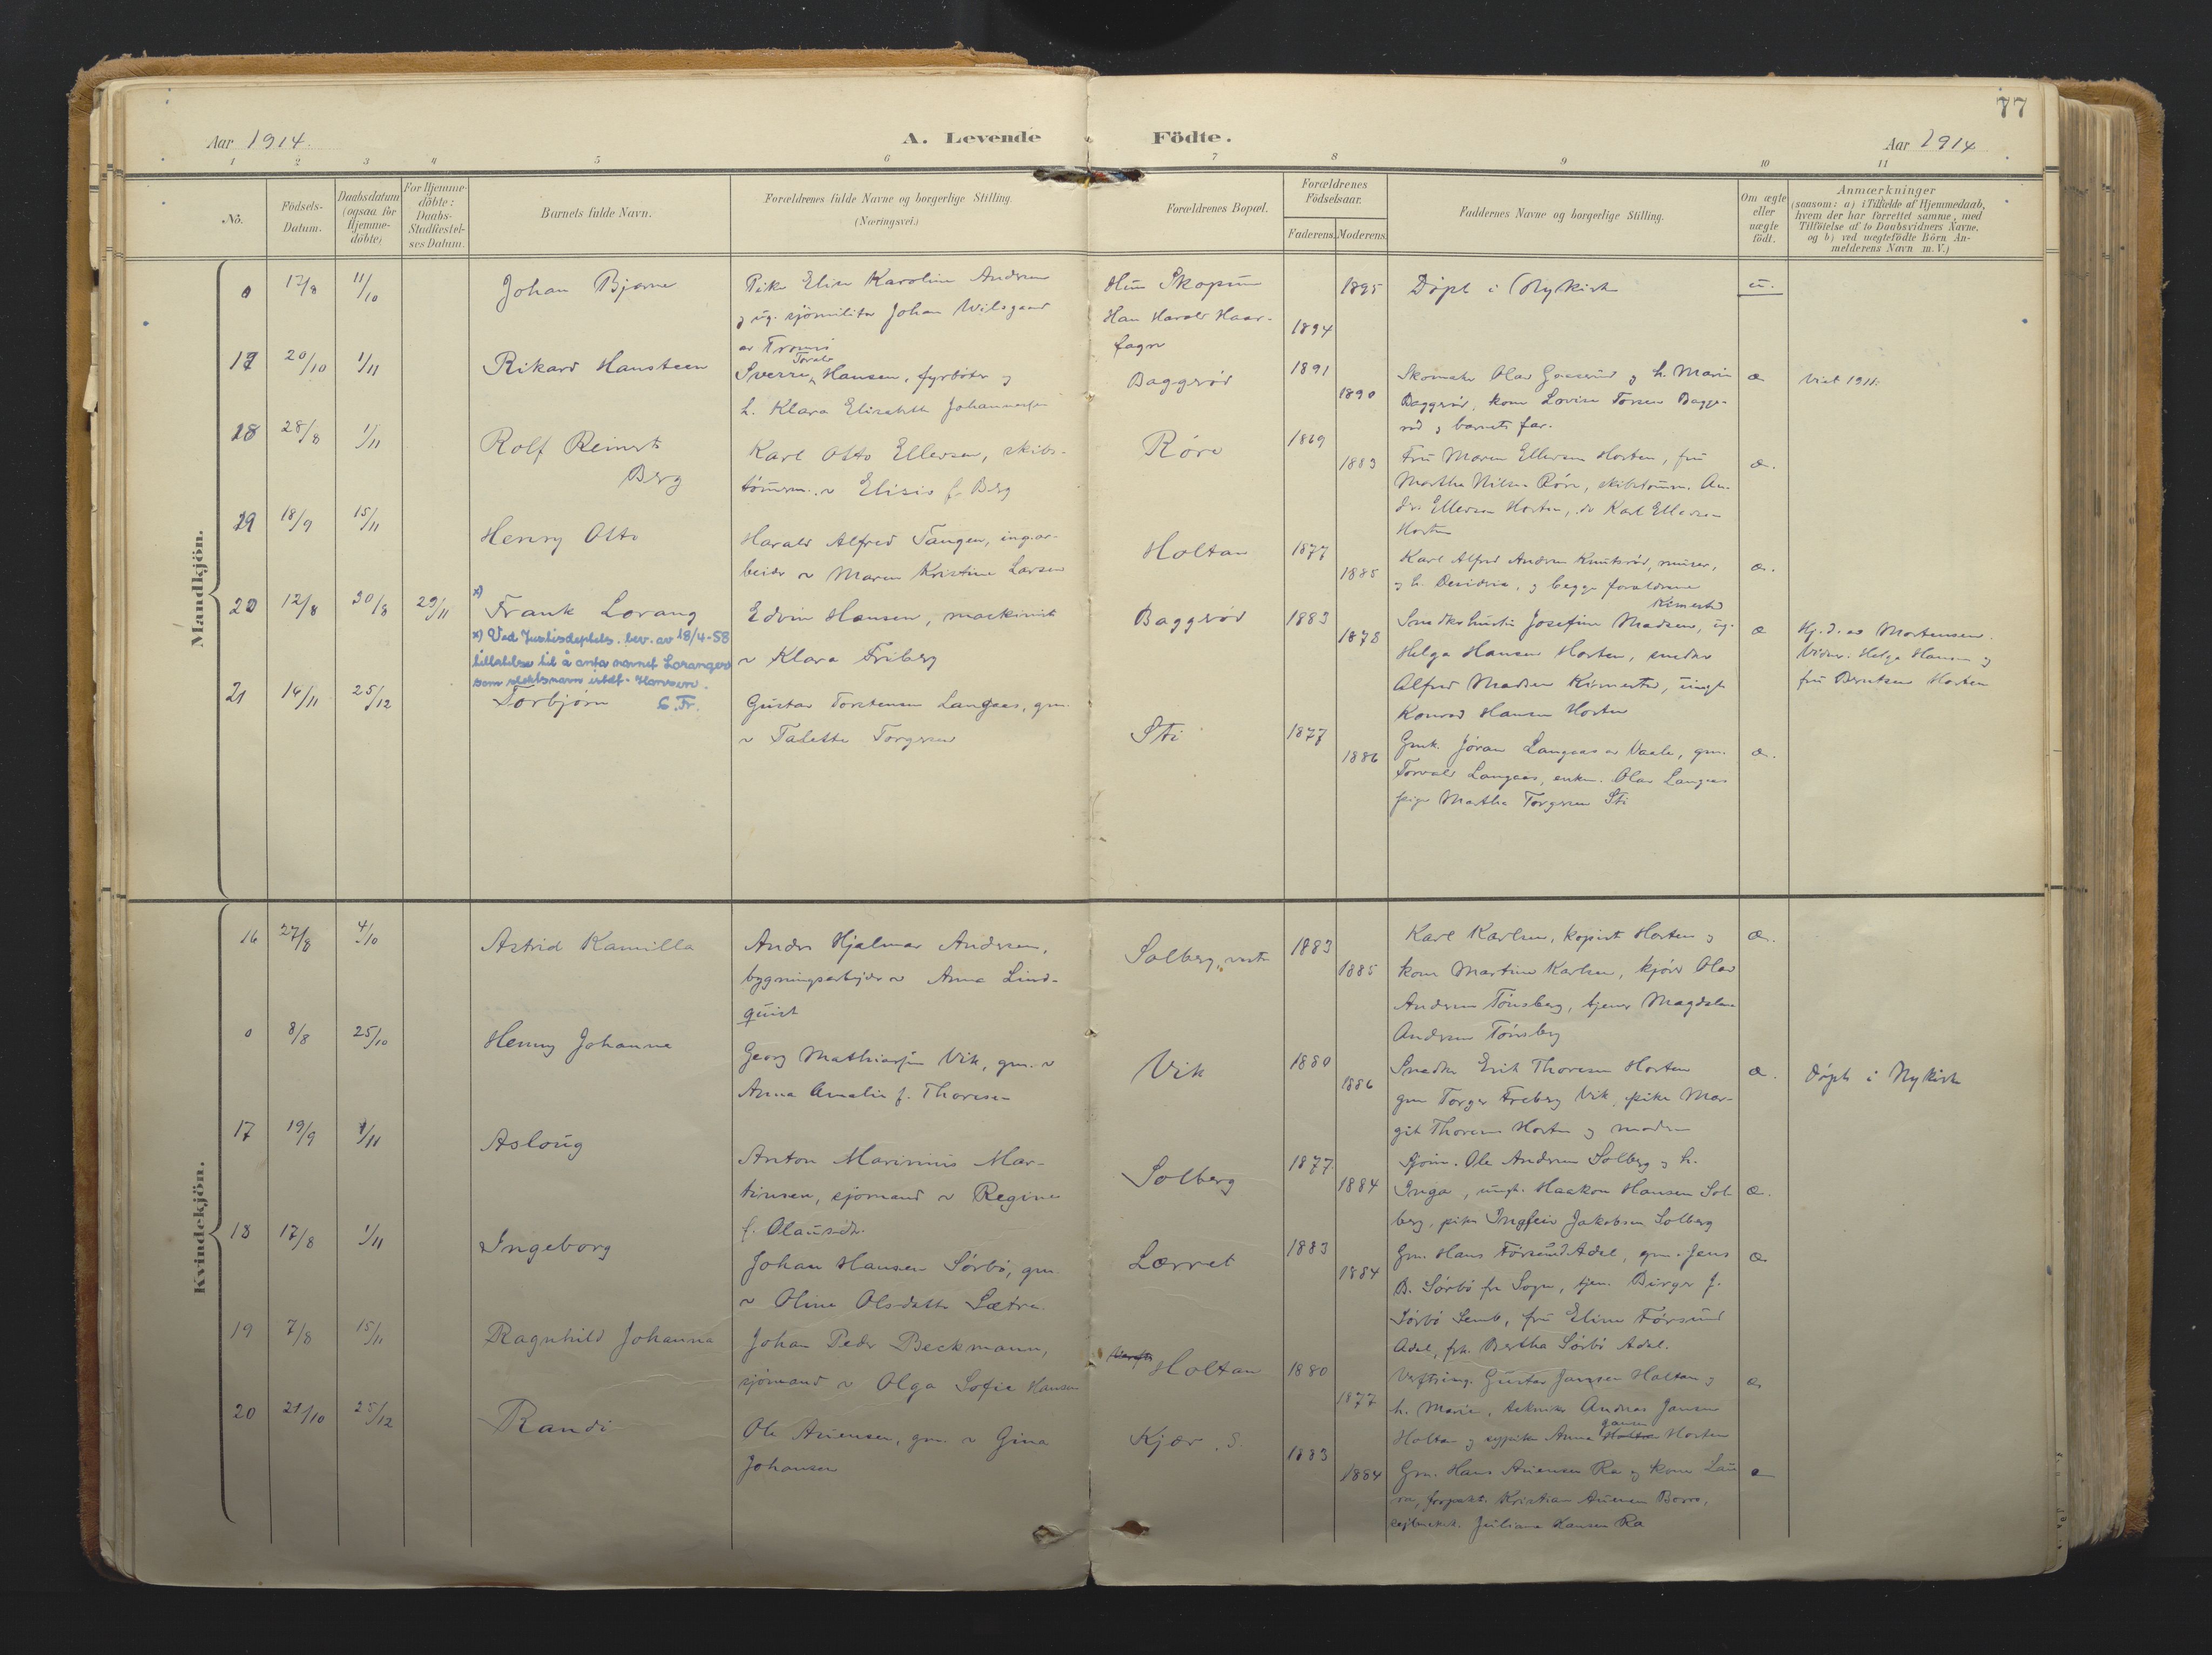 77
Aar 1914.
A. Levende Födte.
Aar 1914
1 2 3 4 5 6 7 8 9 10 11
No.
Födsels-
Datum.
Daabsdatum
(ogsaa for
Hjemme-
döbte)
For Hjemme-
döbte:
Daabs-
Stadfæstel-
ses Datum.
Barnets fulde Navn.
Forældrenes fulde Navne og borgerlige Stilling.
(Næringsvei.)
Forældrenes Bopæl.
Forældrenes
Födselsaar.
Faderens. Moderens.
Faddernes Navne og borgerlige Stilling.
Om ægte
eller
uægte
født.
Anmærkninger
(saasom: a) i Tilfælde af Hjemmedaab,
hvem der har forrettet samme, med
Tilföielse af to Daabsvidners Navne,
og b) ved uægtefödte Börn An-
melderens Navn m. V.)
Mandkjön.
0 17/8 11/10
Johan Bjarne
Pike Elise Karoline Andersen
og ug. sjömilitær Johan Wilsgaard
av Tromsö
Hun Skopum
Han Harald Haar-
fagre
1895
1894
Döpt i Nykirke
u.
17 20/10 1/11
Rikard Hansteen
Sverre Torald Hansen, fyrböter og
h. Klara Elisabeth Johannessen
Baggeröd
1891
1890
Skomaker Olav Gaaserud og h. Marie
Baggeröd, kone Lovise Torsen Bagge-
röd og barnets far.
æ
Viet 1911.
18 28/8 1/11
Rolf Reinert
Berg
Karl Otto Ellersen, skibs-
tömerm. & Elisiv f. Berg
Röre
1869
1883
Fru Maren Ellersen Horten, fru
Martha Nilsen Röre, skibstömm. An-
dr. Ellersen Horten, do Karl Ellersen
Horten
æ.
19 18/9 15/11
Henry Otto
Harald Alfred Tangen, ing.ar-
beider & Maren Kristine Larsen
Holtan
1877
1885
Karl Alfred Andersen Knutsröd, murer,
og h. Desideria, og begge forældrene
æ.
20 12/8 30/8 29/11
x) Frank Lorang
x) Ved Justisdeptets. bev. av 18/4-58
tillatelse til å anta navnet Loranger
som slektsnavn istdf. Hansen.
G. Fr.
Edvin Hansen, maskinist
& Klara Friberg
Baggeröd
1883
1878
Snedkerhustru Josefine Madsen Kirnestad, ug.
Helga Hansen Horten, snedker
Alfred Madsen Kirnestad, ungk.
Konrad Hansen Horten
æ
Hj.d. av Mortensen.
Vidner. Helga Hansen og
fru Berntsen Horten
21 14/11 25/12
Torbjörn
Gustav Torstensen Langaas, gm.
& Talette Torgersen
Sti
1877
1886
Gmk. Jöran Langaas av Vaale, gm.
Torvald Langaas, enkm. Olav Langaas
pige Martha Torgersen Sti
æ.
Kvindekjön.
16 27/8 4/10
Astrid Kamilla
Anders Hjalmar Andersen,
bygningsarbeider & Anna Lind-
quist
Solberg, vestre
1883
1885
Karl Karlsen, kopist Horten og
kone Martine Karlsen, kjörer Olav
Andersen Tönsberg, tjener Magdalene
Andersen Tönsberg
æ.
0 8/8 25/10
Henny Johanne
Georg Mathiassen Vik, gm. &
Anna Amalie f. Thoresen
Vik
1880
1886
Snedker Erik Thoresen Horten
gm Torger Freberg Vik, pike Mar-
git Thoresen Horten og moderen
æ.
Döpt i Nykirke
17 19/9 1/11
Asloug
Anton Marinius Mar-
tinsen, sjömand & Regine
f. Olausdtr.
Solberg
1877
1884
Sjöm. Ole Andersen Solberg og h.
Inga, ungk. Haakon Hansen Sol-
berg, pike Ingfrid Jakobsen Solberg
æ.
18 17/8 1/11
Ingeborg
Johan Hansen Sörbö, gm.
& Oline Olsdatter Sætra.
Lærret
1883
1884
Gm. Hans Försund Adal, gm. Jens
B. Sörbö fra Sogn, tjen. Birger J.
Sörbö Semb, fru Eline Försund
Adal, frk. Bertha Sörbö Adal.
æ
19 7/8 15/11
Ragnhild Johanna
Johan Peder Beckmann,
sjömand & Olga Sofie Hansen
Holtan
1880
1877
Verftsing. Gustav Jansen Holtan og
h. Marie, tekniker Andreas Jansen
Holtan og sypike Anna Jansen Horten
æ
20 21/10 25/12
Randi
Ole Auensen, gm. & Gina
Johansen
Kjær. S.
1883
1884
Gm. Hans Auensen Ra og kone Lau-
ra, forpakt. Kristian Auensen Borre,
Juliane Hansen Ra
æ